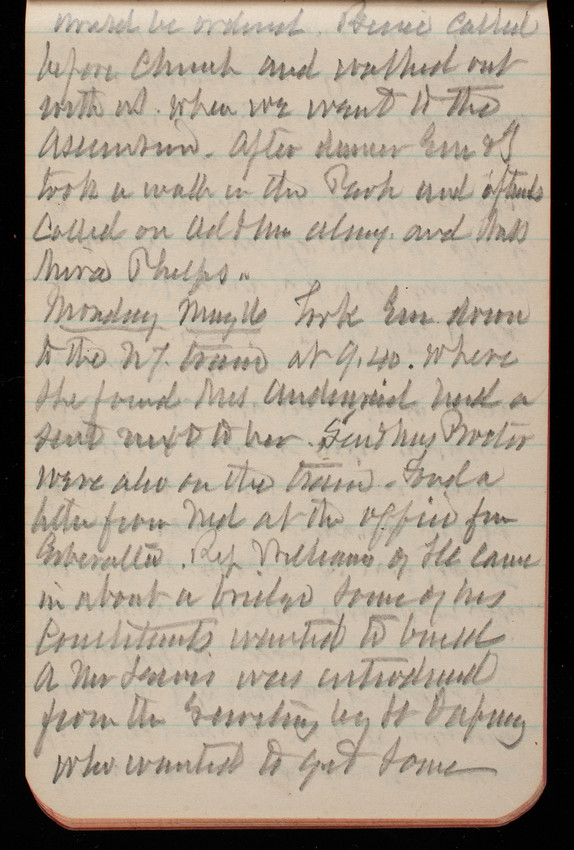 would be ordered. Bessie called
before Church and walked out
with us when we went to the
Ascension. After dinner Em & I
took a walk in the Park and
called on and
Phelps.
Monday May 16 Took Em down
to the NY train at 9.40. where
she found Mrs had a
seat next to her. Proctor
were also on the train. Had a
letter from Ned at the office from
Gibralta. Rep Williams of Ill came
in about a bridge some of his
Constituents wanted to build
A Mr was introduced
from the by
who wanted to get some